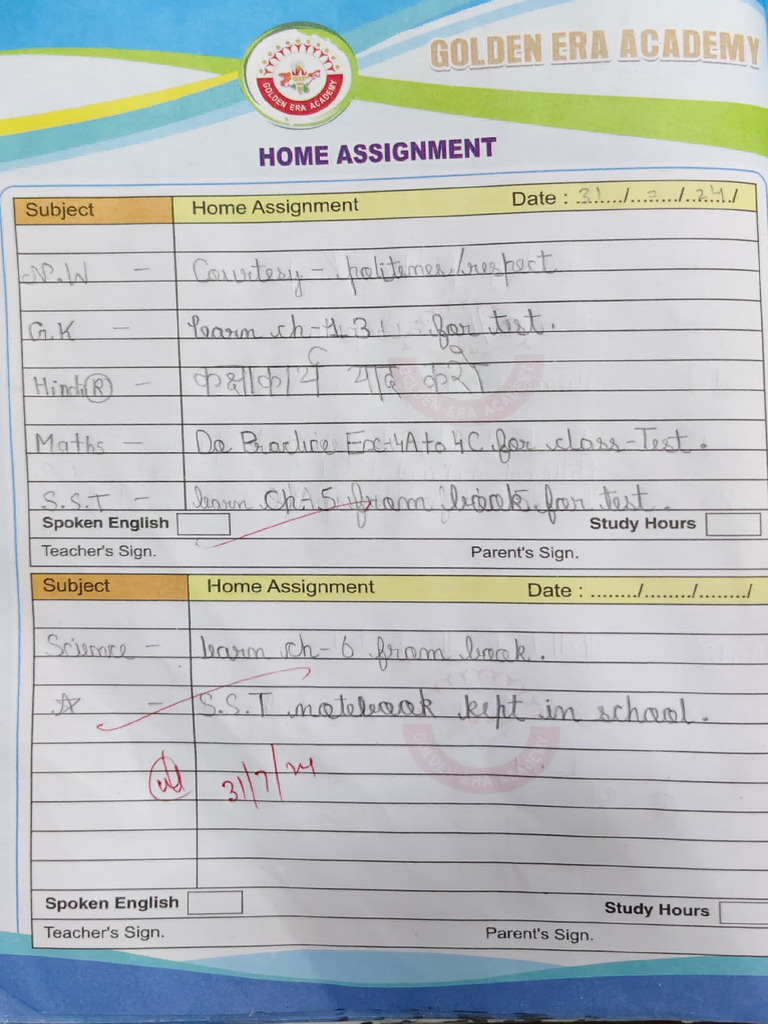 GOLDEN ERA ACADEMY
GOLDEN ERA ACADEMY
HOME ASSIGNMENT
Subject Home Assignment Date : 31/7/24/
N.W - Courtesy - politenes/respect
G.K - learn ch-1, 3 for test.
Hindi (R) - कक्षाकार्य याद करो
Maths - Do Practice Ex-4A to 4C for class-Test.
S.S.T - learn Ch-5 from book for test.
Spoken English Study Hours
Teacher's Sign. Parent's Sign.
Subject Home Assignment Date : ......../......../......../
Science - learn ch-6 from book.
☆ - S.S.T notebook kept in school.
31/7/24
Spoken English Study Hours
Teacher's Sign. Parent's Sign.